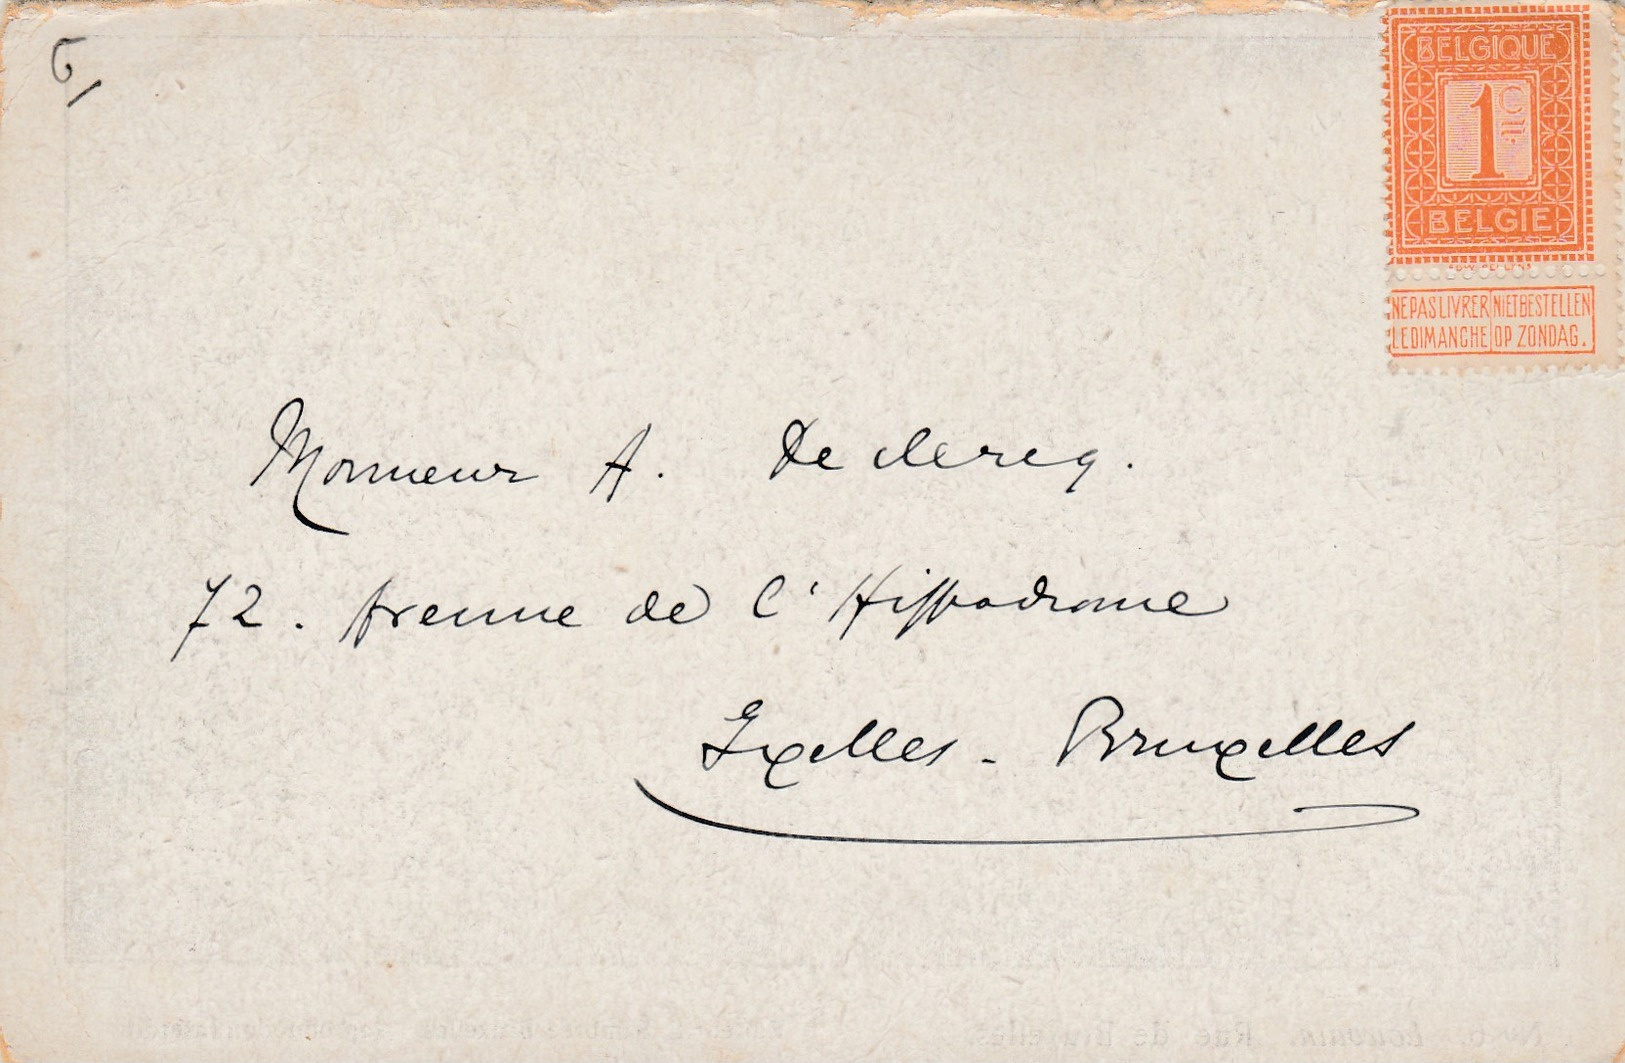 G/
BELGIQUE
1 C
BELGIE
NE PAS LIVRER NIET BESTELLEN
LE DIMANCHE OP ZONDAG.
Monsieur A. De clercq.
72. Avenue de l'Hippodrome
Ixelles - Bruxelles
Louvain. Rue de Bruxelles.